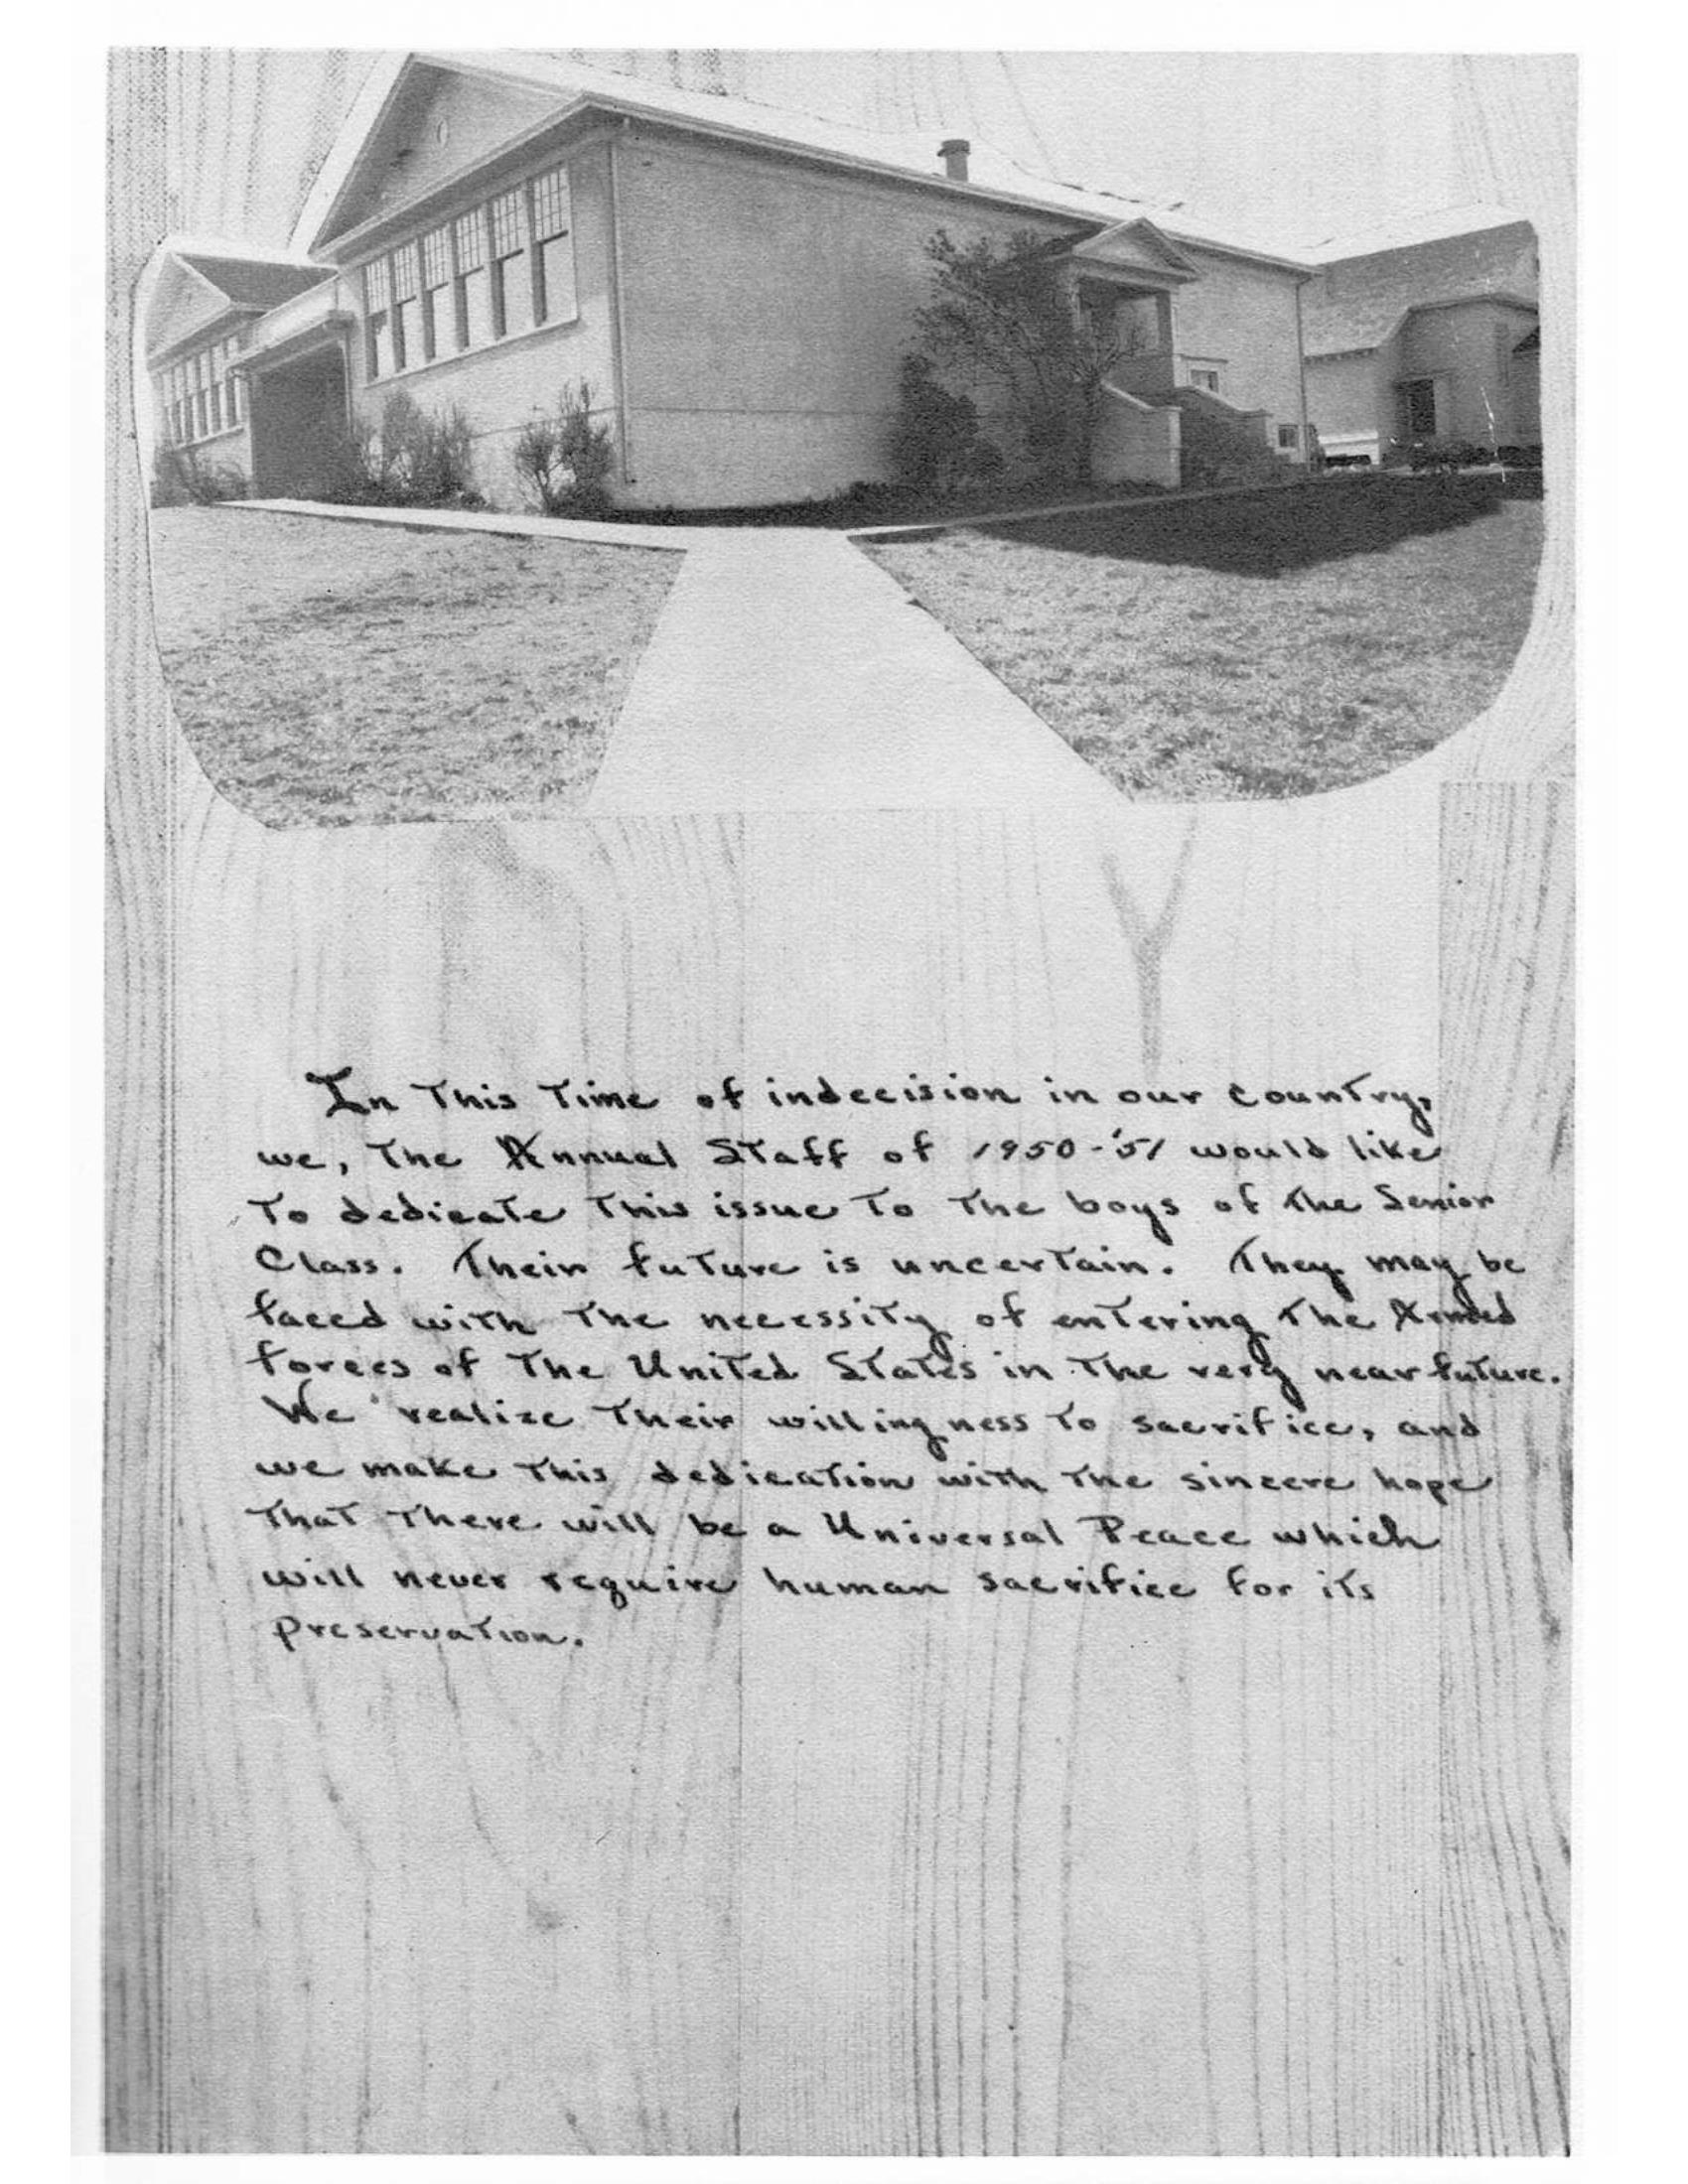 In This Time of indecision in our Country,
we, The Annual Staff of 1950-'51 would like
To dedicate This issue To The boys of the Senior
Class. Their future is uncertain. They may be
faced with The necessity of entering The Armed
forces of The United States in The very near future.
We realize Their willingness To sacrifice, and
we make This dedication with The sincere hope
That There will be a Universal Peace which
will never require human sacrifice for its
preservation.